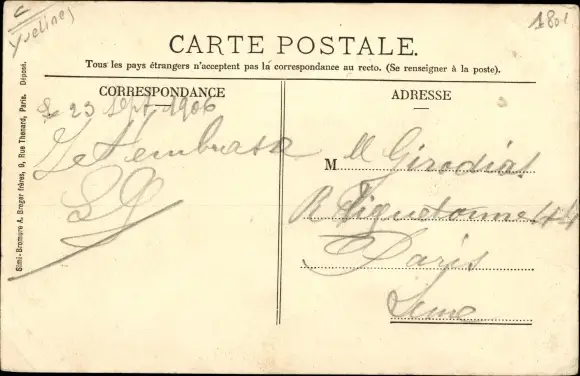 Yvelines
CARTE POSTALE.
Tous les pays étrangers n'acceptent pas la correspondance au recto. (Se renseigner à la poste).
CORRESPONDANCE
Le 23 Sept. 1906
Je t'embrasse
Simi-Bromure A. Breger frères, 9, Rue Thenard, Paris. Déposé.
ADRESSE
M M Girodias
R Tiquetonne 44
Paris
Seine